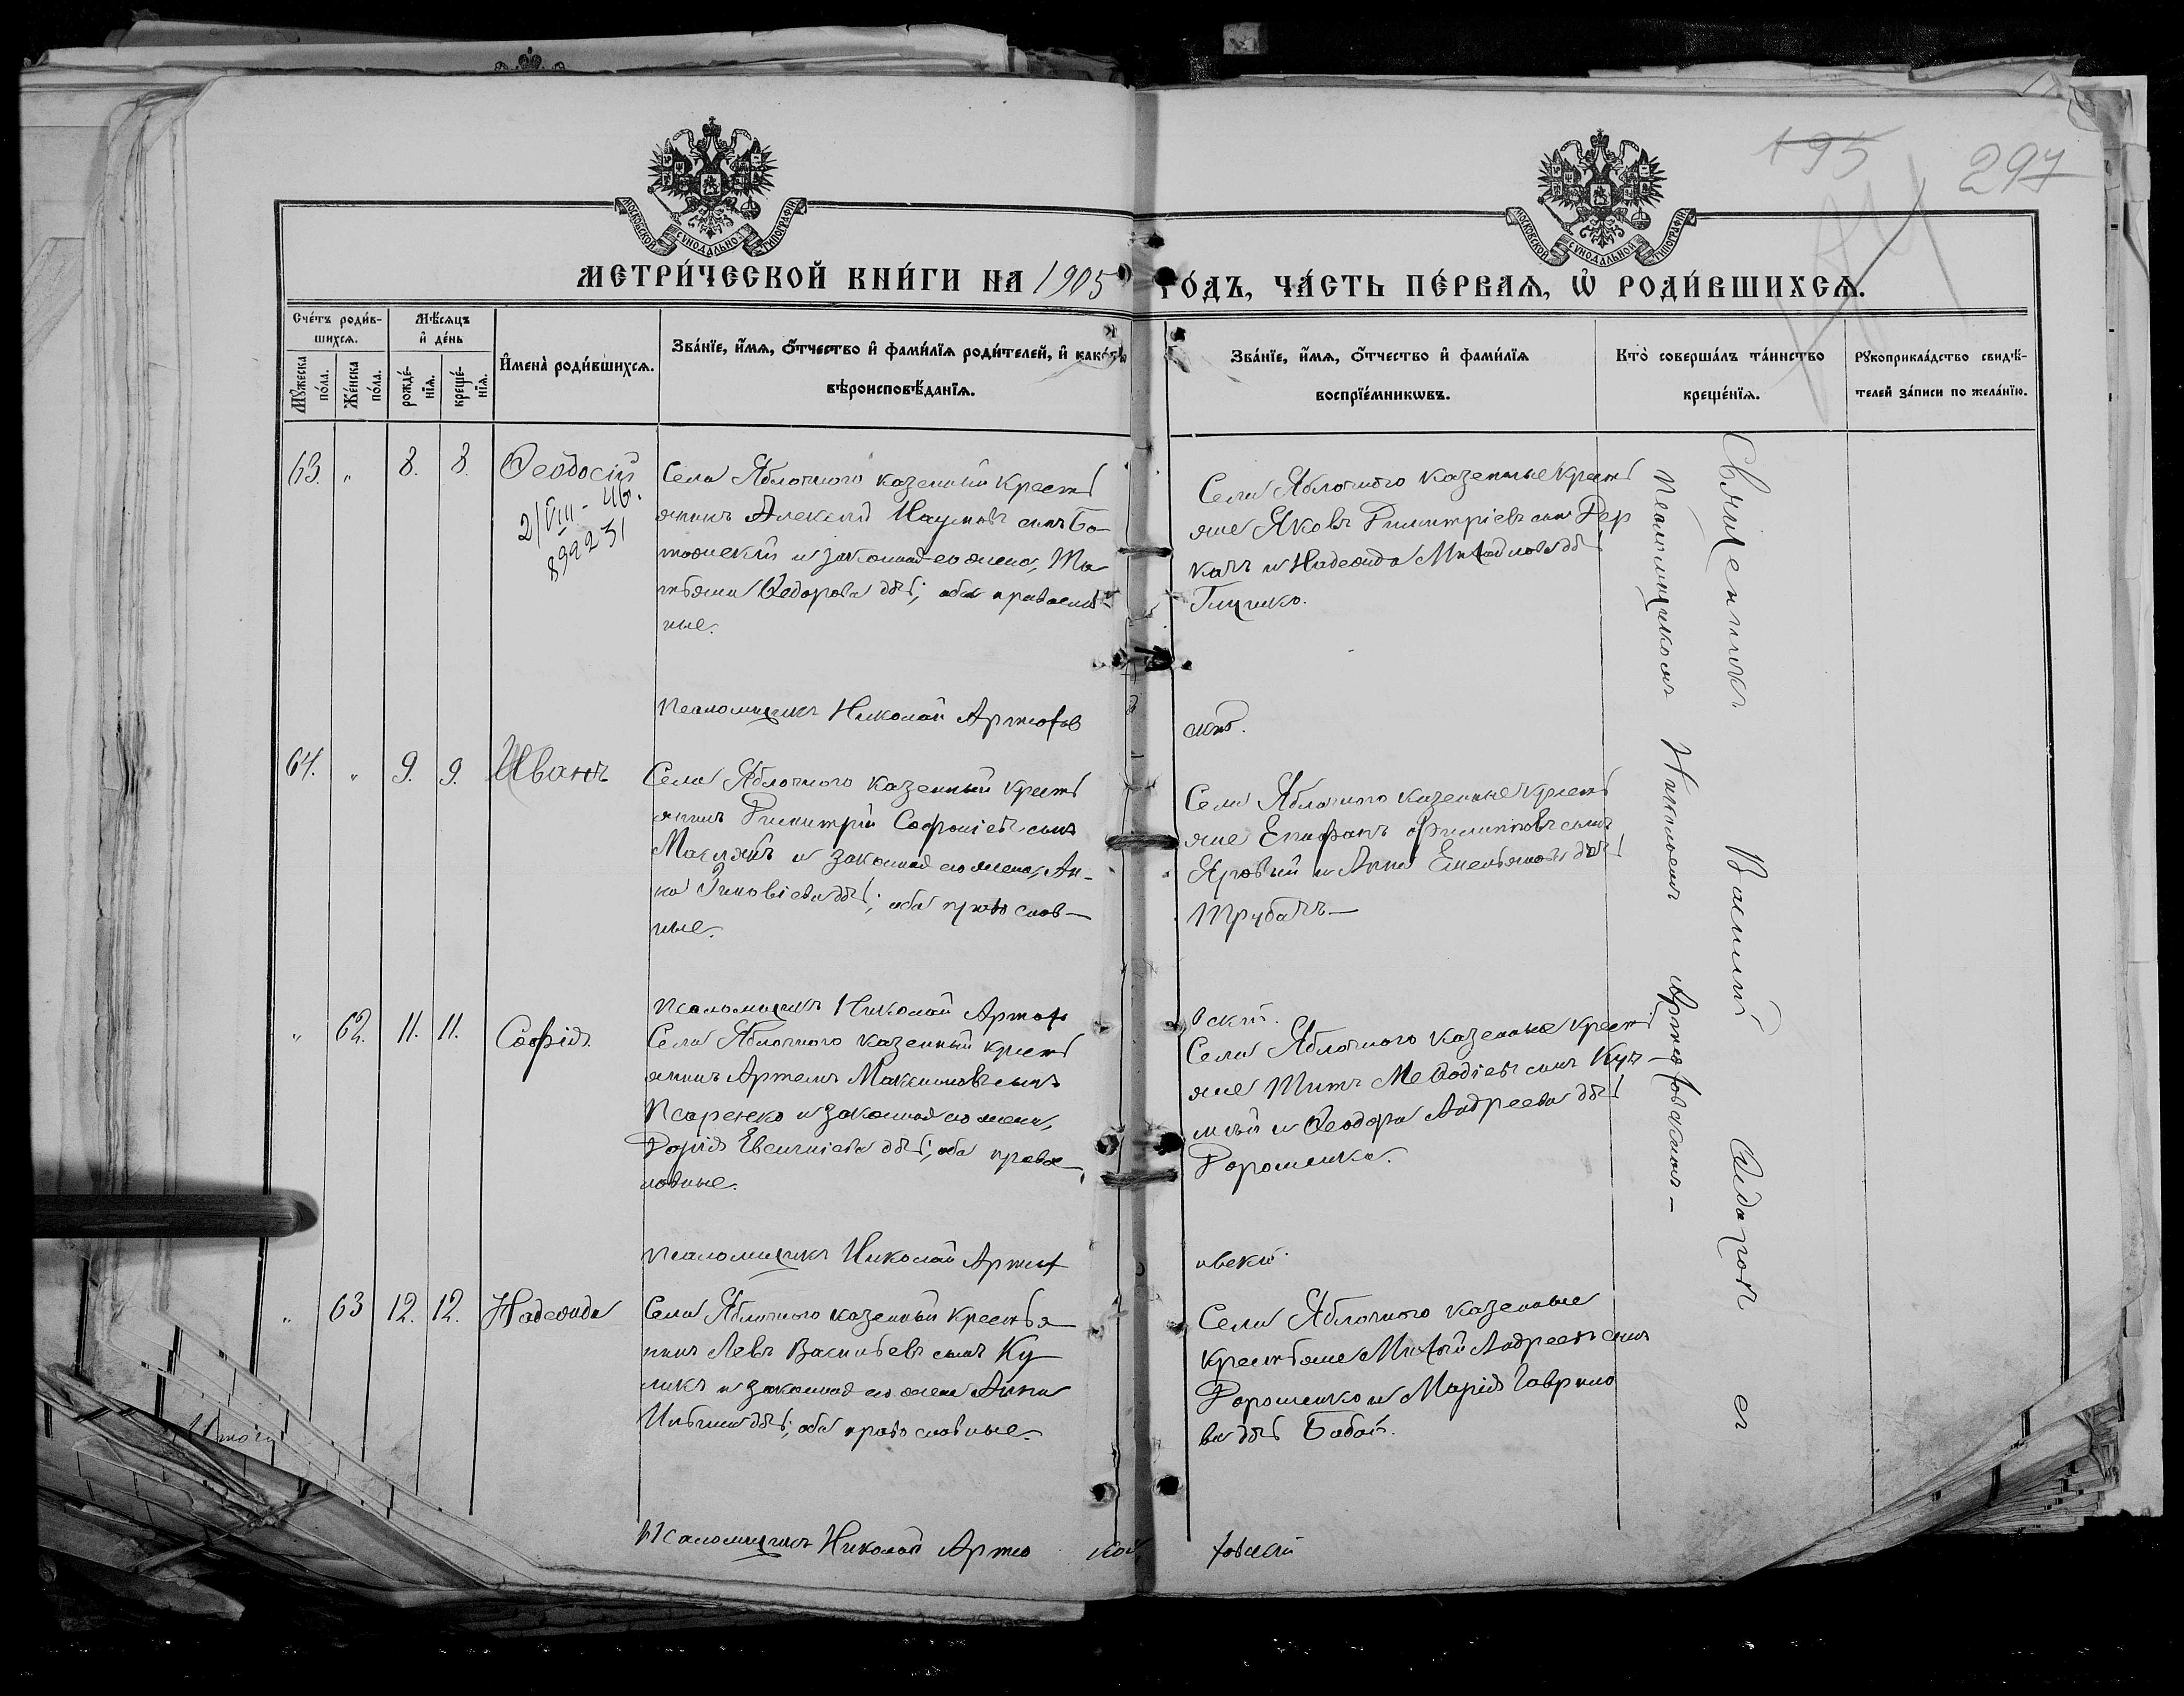 195
297
МОСКОВСКОЙ СѴНОДАЛЬНОЙ ТИПОГРАФІИ
МОСКОВСКОЙ СѴНОДАЛЬНОЙ ТИПОГРАФІИ
МЕТРИ́ЧЕСКОЙ КНИ́ГИ НА 1905 ГО́ДЪ, ЧА́СТЬ ПЕ́РВАѦ, Ѡ҆ РОДИ́ВШИХСѦ.
Сче́тъ роди́в-
шихсѧ.
Мꙋ́жеска
по́ла.
Же́нска
по́ла.
Мѣ́сѧцъ
и҆ де́нь
рожде́-
нїѧ.
креще́-
нїѧ.
И҆мена̀ роди́вшихсѧ.
Зва́нїе, и҆́мѧ, ѻ҆́тчество и҆ фами́лїѧ роди́телей, и҆ како́гѡ
вѣроисповѣ́данїѧ.
Зва́нїе, и҆́мѧ, ѻ҆́тчество и҆ фами́лїѧ
воспрїе́мникѡвъ.
Кто̀ соверша́лъ та́инство
креще́нїѧ.
Рꙋкоприкла́дство свидѣ́-
телей за́писи по жела́нїю.
63. " 8. 8. Ѳеодосій
2/VIII - 46.
899231
Села Яблочного казенный кресть
янинъ Алексѣй Наумовъ сынъ Бо-
и законная его жена, Та
тьяна Ѳедорова дочь; оба православ-
ные.
Псаломщикъ Николай Артюхов
Села Яблочного казенные кресть
яне Яковъ Димитріевъ сынъ Дер
качъ и Надежда Михайлова дочь
Глушко.
скій.
64. " 9. 9. Иванъ
Села Яблочного казенный кресть
янинъ Димитрій Софоніевъ сынъ
и законная его жена, Ан-
на Зиновіева дочь; оба православ-
ные.
Псаломщикъ Николай Артюх
Села Яблочного казенные кресть
яне Епифанъ Филипповъ сынъ
Яровый и Анна Емельянова дочь
Трубачъ
овскій.
" 62. 11. 11. Софія.
Села Яблочного казенный кресть
янинъ Артемъ Максимовъ сынъ
Псаренко и законная его жена,
Дарія Евсигніева дочь; оба правос
лавные.
Псаломщикъ Николай Артюх
Села Яблочного казенные кресть
яне Титъ Меѳодіевъ сынъ Куц
и Ѳеодора Андреева дочь
Дорошенко.
овскій.
" 63 12. 12. Надежда
Села Яблочного казенный крестья
нинъ Левъ Васильевъ сынъ Ку
ликъ и законная его жена Анна
Ильина дочь; оба православные.
Псаломщикъ Николай Артю
Села Яблочного казенные
крестьяне Михей Андреевъ сынъ
Дорошенко и Марія Гаврило
ва дочь Бабай.
ховскій
Священникъ Василій Сидоровъ съ
псаломщикомъ Николаемъ Артюховскимъ
Итого